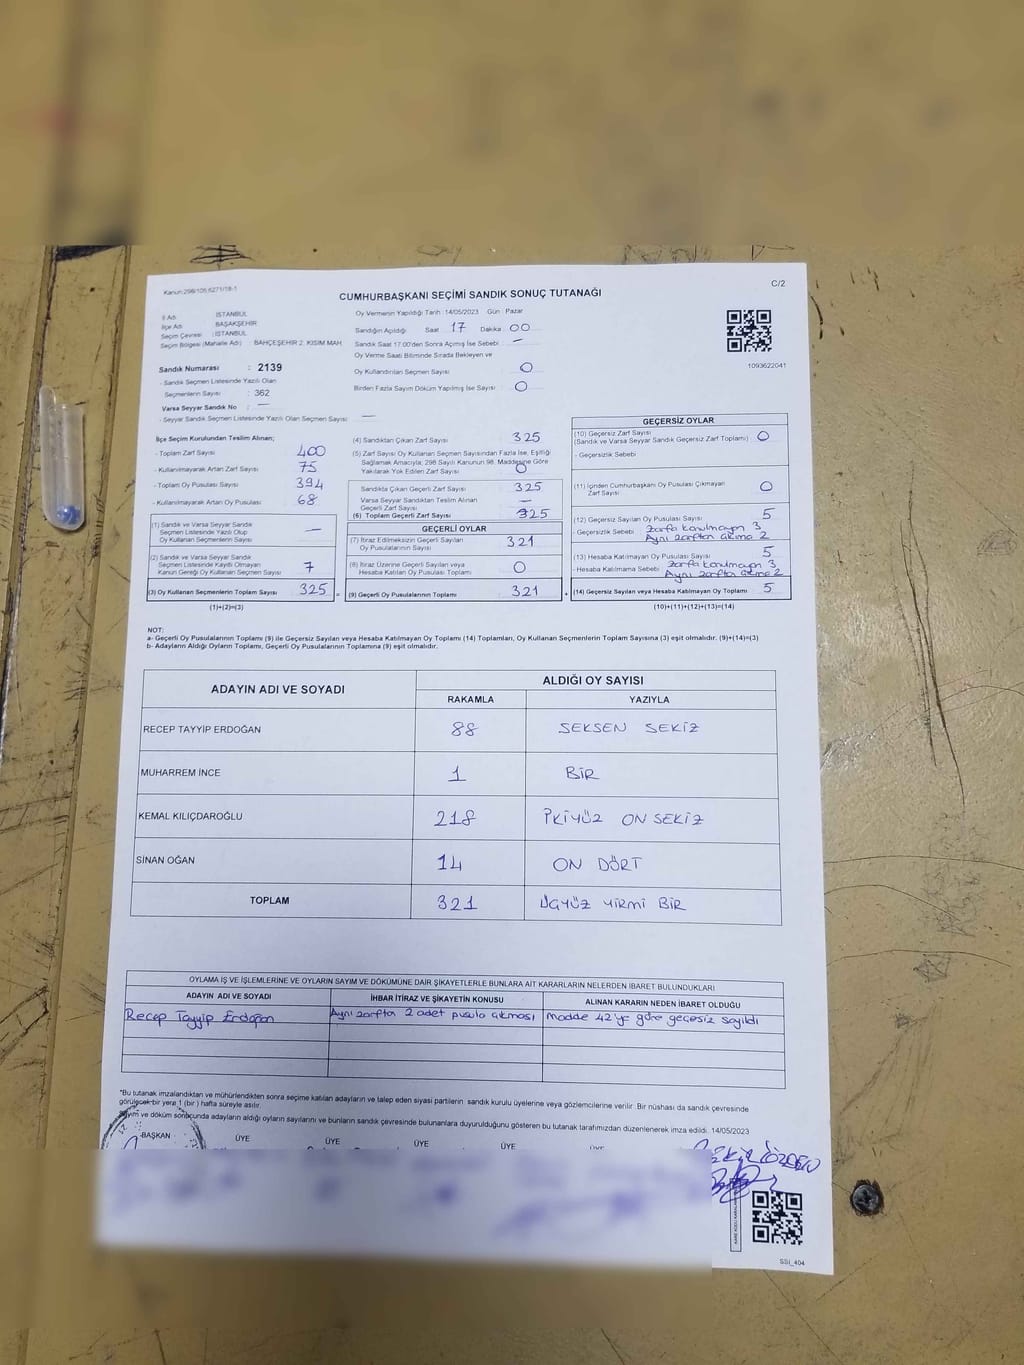 Kanun:298/105,6271/18-1
C/2
CUMHURBAŞKANI SEÇİMİ SANDIK SONUÇ TUTANAĞI
İl Adı : İSTANBUL
İlçe Adı : BAŞAKŞEHİR
Seçim Çevresi : İSTANBUL
Seçim Bölgesi (Mahalle Adı) : BAHÇEŞEHİR 2. KISIM MAH
Sandık Numarası : 2139
- Sandık Seçmen Listesinde Yazılı Olan
Seçmenlerin Sayısı : 362
Varsa Seyyar Sandık No : —
- Seyyar Sandık Seçmen Listesinde Yazılı Olan Seçmen Sayısı : —
Oy Vermenin Yapıldığı Tarih :14/05/2023 Gün : Pazar
Sandığın Açıldığı Saat 17 Dakika 00
Sandık Saat 17:00'den Sonra Açılmış İse Sebebi : —
Oy Verme Saati Bitiminde Sırada Bekleyen ve
Oy Kullandırılan Seçmen Sayısı : 0
Birden Fazla Sayım Döküm Yapılmış İse Sayısı : 0
1093622041
İlçe Seçim Kurulundan Teslim Alınan;
- Toplam Zarf Sayısı 400
- Kullanılmayarak Artan Zarf Sayısı 75
- Toplam Oy Pusulası Sayısı 394
- Kullanılmayarak Artan Oy Pusulası 68
(1) Sandık ve Varsa Seyyar Sandık
Seçmen Listesinde Yazılı Olup
Oy Kullanan Seçmenlerin Sayısı —
(2) Sandık ve Varsa Seyyar Sandık
Seçmen Listesinde Kayıtlı Olmayan
Kanun Gereği Oy Kullanan Seçmen Sayısı 7
(3) Oy Kullanan Seçmenlerin Toplam Sayısı 325 =
(1)+(2)=(3)
(4) Sandıktan Çıkan Zarf Sayısı 325
(5) Zarf Sayısı Oy Kullanan Seçmen Sayısından Fazla İse, Eşitliği
Sağlamak Amacıyla; 298 Sayılı Kanunun 98. Maddesine Göre
Yakılarak Yok Edilen Zarf Sayısı 0
Sandıkta Çıkan Geçerli Zarf Sayısı 325
Varsa Seyyar Sandıktan Teslim Alınan
Geçerli Zarf Sayısı —
(6) Toplam Geçerli Zarf Sayısı 325
GEÇERLİ OYLAR
(7) İtiraz Edilmeksizin Geçerli Sayılan
Oy Pusulalarının Sayısı 321
(8) İtiraz Üzerine Geçerli Sayılan veya
Hesaba Katılan Oy Pusulası Toplamı 0
(9) Geçerli Oy Pusulalarının Toplamı 321 +
GEÇERSİZ OYLAR
(10) Geçersiz Zarf Sayısı
(Sandık ve Varsa Seyyar Sandık Geçersiz Zarf Toplamı) 0
- Geçersizlik Sebebi
(11) İçinden Cumhurbaşkanı Oy Pusulası Çıkmayan
Zarf Sayısı 0
(12) Geçersiz Sayılan Oy Pusulası Sayısı 5
- Geçersizlik Sebebi zarfa konulmayan 3
Aynı zarftan çıkma 2
(13) Hesaba Katılmayan Oy Pusulası Sayısı 5
- Hesaba Katılmama Sebebi zarfa konulmayan 3
Aynı zarftan çıkma 2
(14) Geçersiz Sayılan veya Hesaba Katılmayan Oy Toplamı 5
(10)+(11)+(12)+(13)=(14)
NOT:
a- Geçerli Oy Pusulalarının Toplamı (9) ile Geçersiz Sayılan veya Hesaba Katılmayan Oy Toplamı (14) Toplamları, Oy Kullanan Seçmenlerin Toplam Sayısına (3) eşit olmalıdır. (9)+(14)=(3)
b- Adayların Aldığı Oyların Toplamı, Geçerli Oy Pusulalarının Toplamına (9) eşit olmalıdır.
ADAYIN ADI VE SOYADI
ALDIĞI OY SAYISI
RAKAMLA YAZIYLA
RECEP TAYYİP ERDOĞAN 88 SEKSEN SEKİZ
MUHARREM İNCE 1 BİR
KEMAL KILIÇDAROĞLU 218 İKİYÜZ ON SEKİZ
SİNAN OĞAN 14 ON DÖRT
TOPLAM 321 ÜÇYÜZ YİRMİ BİR
OYLAMA İŞ VE İŞLEMLERİNE VE OYLARIN SAYIM VE DÖKÜMÜNE DAİR ŞİKAYETLERLE BUNLARA AİT KARARLARIN NELERDEN İBARET BULUNDUKLARI
ADAYIN ADI VE SOYADI İHBAR İTİRAZ VE ŞİKAYETİN KONUSU ALINAN KARARIN NEDEN İBARET OLDUĞU
Recep Tayyip Erdoğan Aynı zarftan 2 adet pusula çıkması Madde 42'ye göre geçesiz sayıldı
*Bu tutanak imzalandıktan ve mühürlendikten sonra seçime katılan adayların ve talep eden siyasi partilerin sandık kurulu üyelerine veya gözlemcilerine verilir. Bir nüshası da sandık çevresinde
görülecek bir yere 1 (bir ) hafta süreyle asılır.
Sayım ve döküm sonucunda adayların aldığı oyların sayılarını ve bunların sandık çevresinde bulunanlara duyurulduğunu gösteren bu tutanak tarafımızdan düzenlenerek imza edildi. 14/05/2023
BAŞKAN ÜYE ÜYE ÜYE ÜYE
SSİ_404